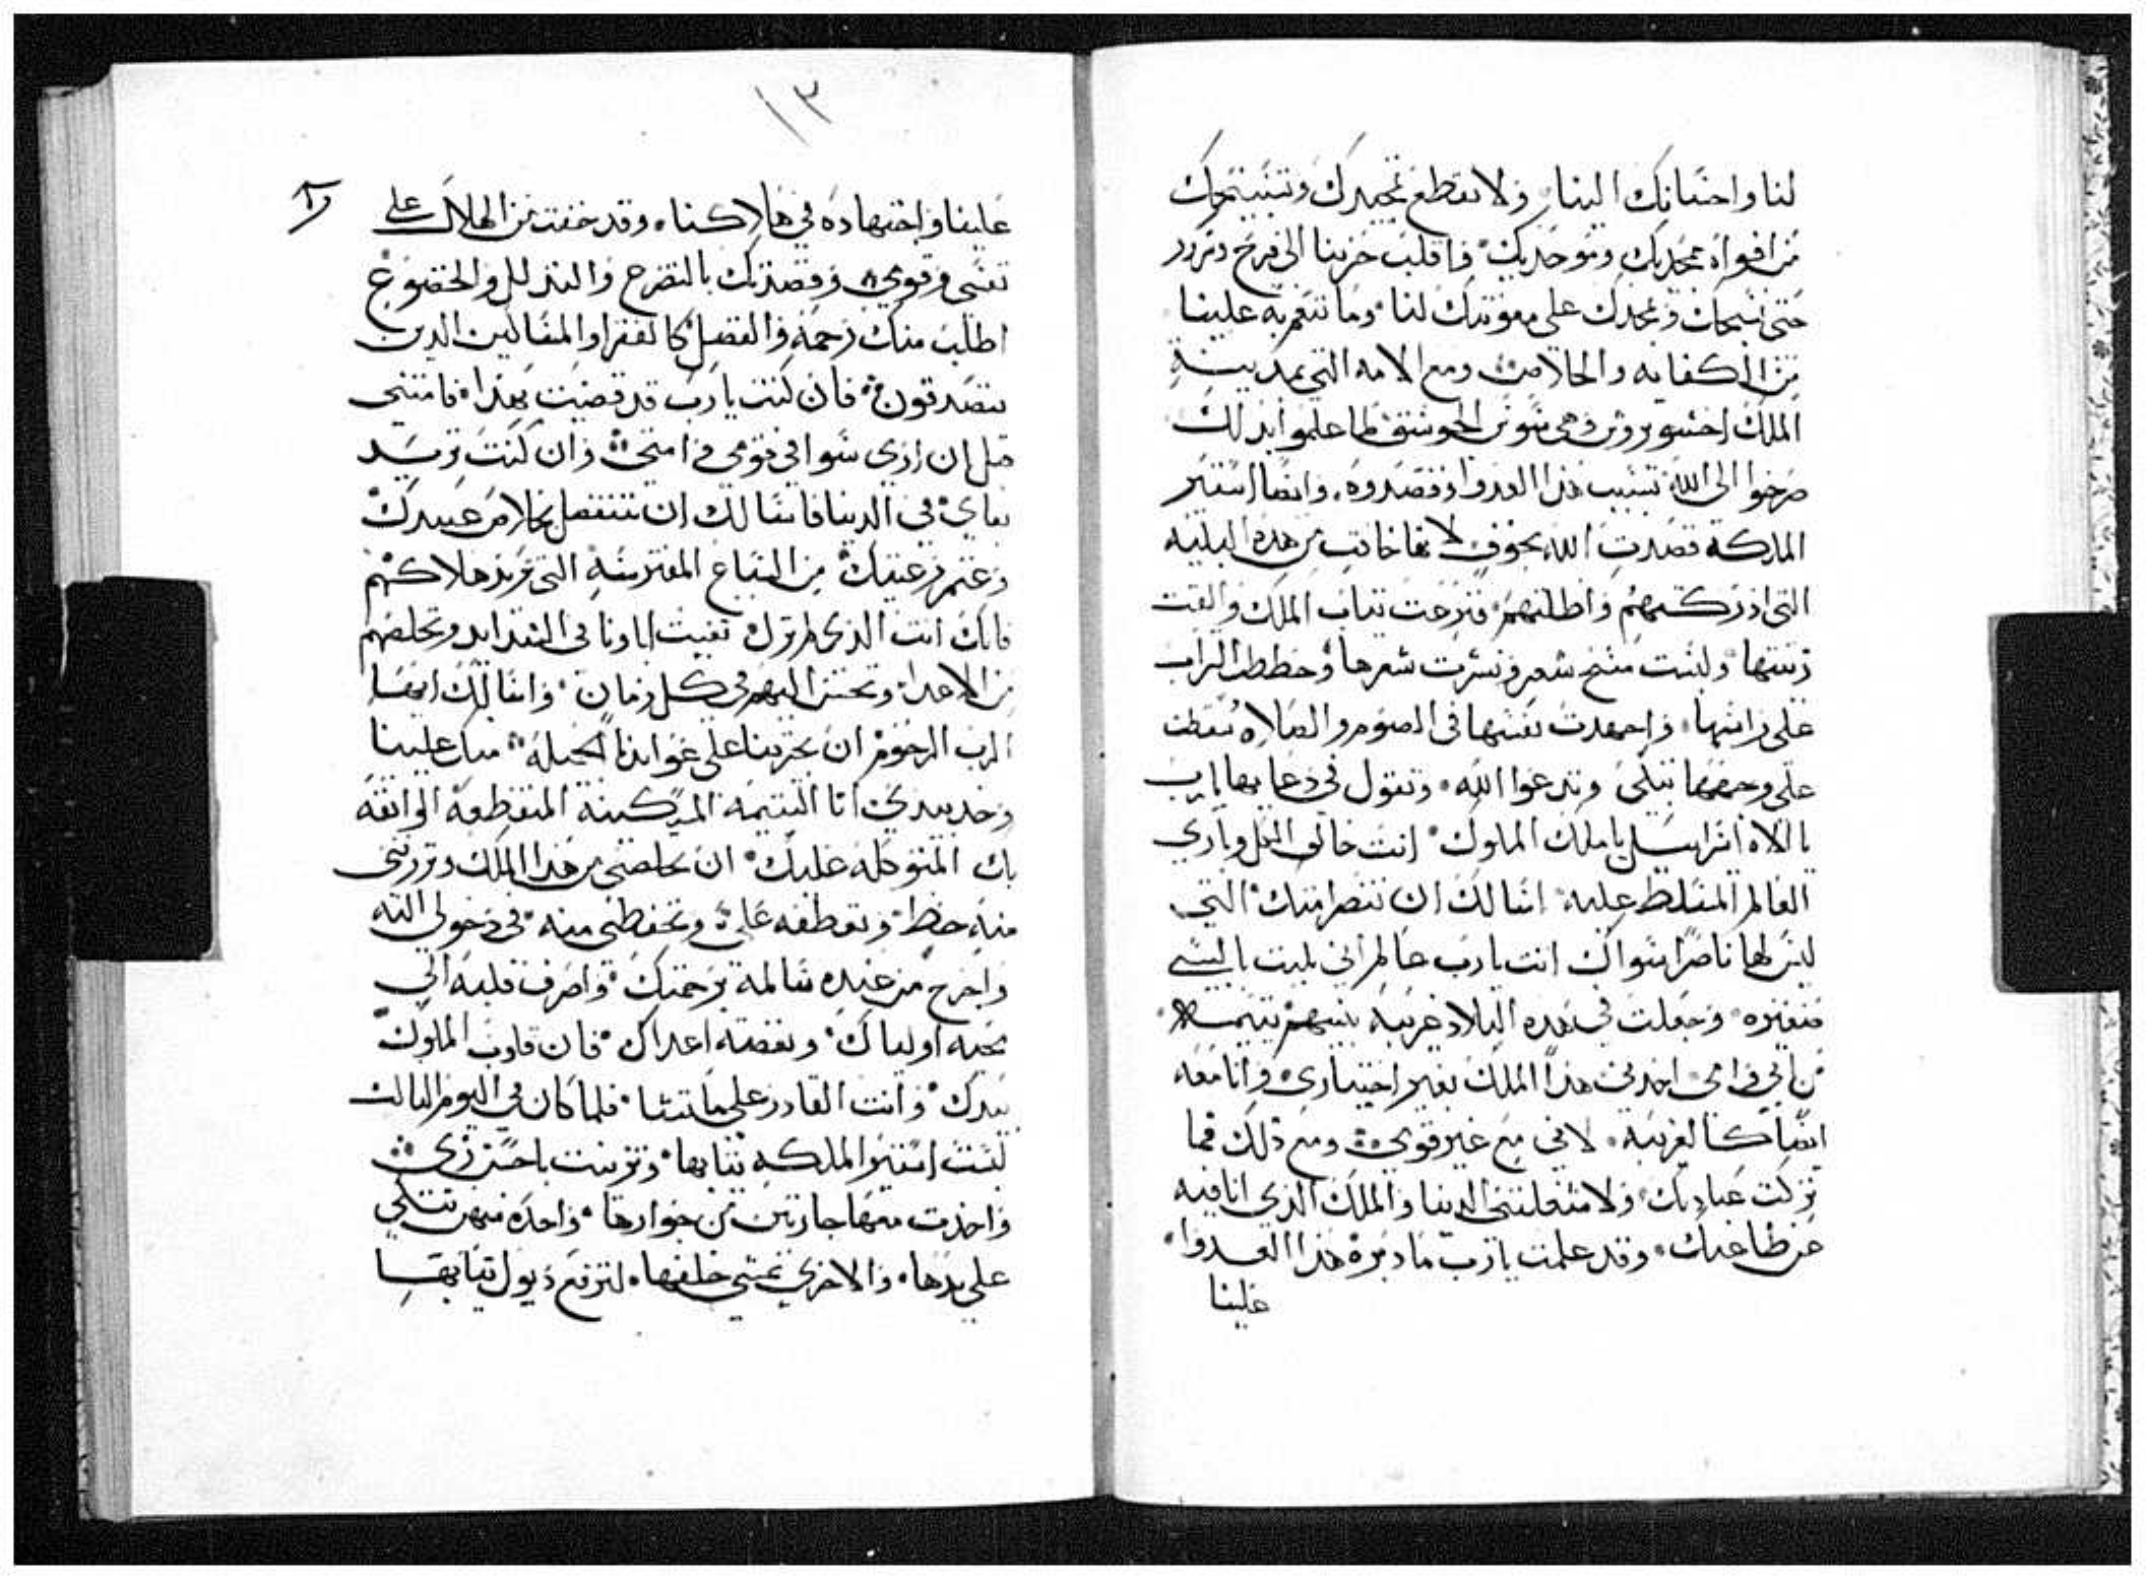 لنا واحسانك الينا ولا تقطع تمجيدك وتسبيحك
من افواه ممجديك وموحديك فاقلب حزننا الى فرح وسرور
حتى نسبحك ونمجدك على معونتك لنا وما تنعم به علينا
من الكفايه والخلاص ومع الامه التي بمدينة
الملك احشويروش وهي سوس الجوسق لما علموا بذلك
صرخوا الى الله بسبب هذا العدوا وقصدوه وايضا استير
الملكة قصدت الله بخوف لانها خافت من هذه البليه
التي ادركتهم واظلتهم فنزعت ثياب الملك والقت
زينتها ولبست مسح شعر ونشرت شعرها وحطت التراب
على راسها واجهدت نفسها في الصوم والصلاه سقطت
على وجهها تبكي وتدعوا الله وتقول في دعايها يا رب
يا الاه اسراييل يا ملك الملوك انت خالق الكل وباري
العالم المتسلط عليه اسالك ان تنصر امتك التي
ليس لها ناصرا سواك انت يا رب عالم اني بليت بالسبي
صغيره وجعلت في هذه البلاد غريبه بينهم يتيمه
من ابي وامي اخدني هذا الملك بغير اختياري وانا معه
ايضا كالغريبه لاني مع غير قومي ومع ذلك فما
تركت عبادتك ولا شغلتني الدنيا والملك الذي انا فيه
عن طاعتك وقد علمت يا رب ما دبره هذا العدوا
علينا
١٣
علينا واجتهاده في هلاكنا وقد خفت من الهلاك على
نفسي وقومي وقصدتك بالتضرع والتذلل والخضوع
اطلب منك رحمة والفضل كالفقرا والمساكين الدين
يتصدقون فان كنت يا رب قد قضيت بهذا فامتني
قبل ان ارى سوا في قومي وامتي وان كنت تريد
بقاي في الدنيا فاسالك ان تتفضل بخلاص عبيدك
وغنم رعيتك من السباع المفترسة التي تريد هلاكهم
فانك انت الذي لم تزل تغيث اباونا في الشدايد وتخلصهم
من الاعدا وتحسن اليهم في كل زمان واسالك ايضا
الرب الرحوم ان تجرينا على عوايدنا الجميلة منك علينا
وخد بيدي انا اليتيمه المسكينة المنقطعة الواثقه
بك المتوكله عليك ان تخلصني من هذا الملك وترزقني
منه حظا وتعطفه علي وتحفظني منه في دخولي اليه
واخرج من عنده سالمة برحمتك واصرف قلبه الى
محبة اولياك وبغضة اعداك فان قلوب الملوك
بيدك وانت القادر على ما تشا فلما كان في اليوم الثالث
لبست استير الملكه ثيابها وتزينت باحسن زي
واخذت معها جاريتين من جوارها واحده منهن تتكي
على يدها والاخرى تمشي خلفها لترفع ديول ثيابها